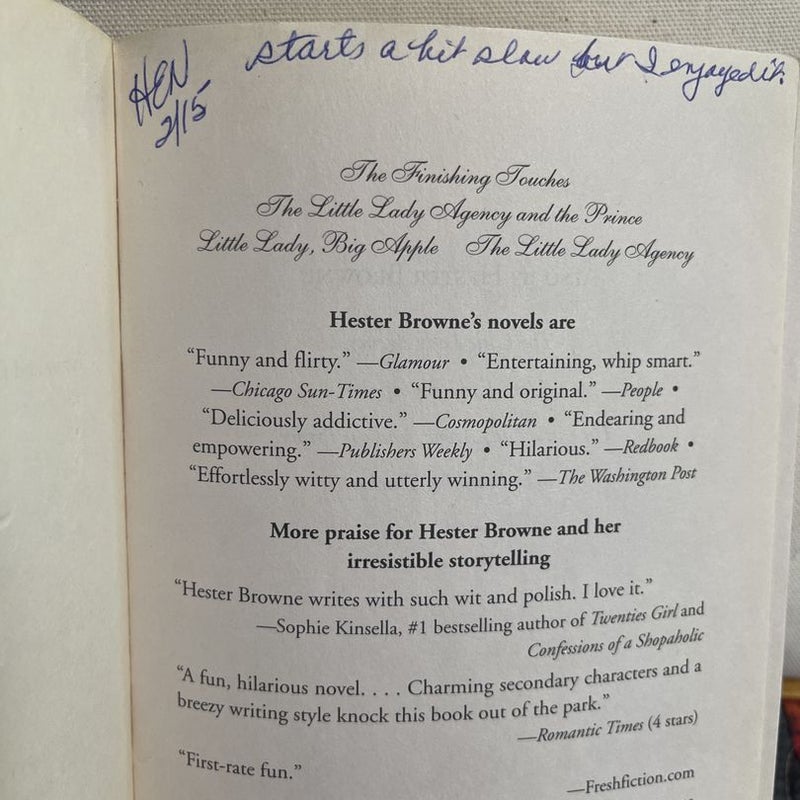 starts a bit slow but I enjoyed it.
HEN
2/15
The Finishing Touches
The Little Lady Agency and the Prince
Little Lady, Big Apple The Little Lady Agency
Hester Browne's novels are
“Funny and flirty.” —Glamour • “Entertaining, whip smart.”
—Chicago Sun-Times • “Funny and original.” —People •
“Deliciously addictive.” —Cosmopolitan • “Endearing and
empowering.” —Publishers Weekly • “Hilarious.” —Redbook •
“Effortlessly witty and utterly winning.” —The Washington Post
More praise for Hester Browne and her
irresistible storytelling
“Hester Browne writes with such wit and polish. I love it.”
—Sophie Kinsella, #1 bestselling author of Twenties Girl and
Confessions of a Shopaholic
“A fun, hilarious novel. . . . Charming secondary characters and a
breezy writing style knock this book out of the park.”
—Romantic Times (4 stars)
“First-rate fun.”
—Freshfiction.com